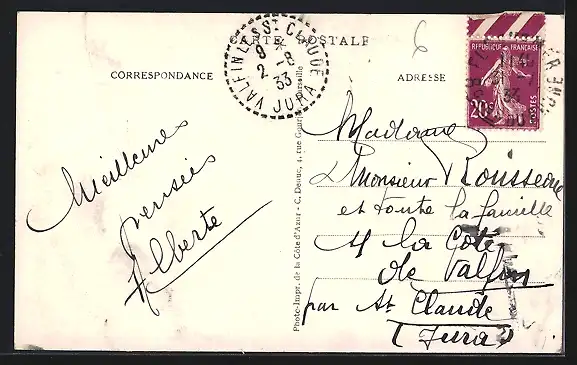 CARTE POSTALE
CORRESPONDANCE
ADRESSE
VALFIN LES ST CLAUDE
9 -8
2 33
JURA
REPUBLIQUE FRANÇAISE
20c
POSTES
6
Meilleures
pensées
Alberte
Photo-Impr. de la Côte d'Azur - C. 4, rue Marseille
Madame
Monsieur Rousseau
et toute la famille
à la Côte
de Valfin
par St Claude
(Jura)